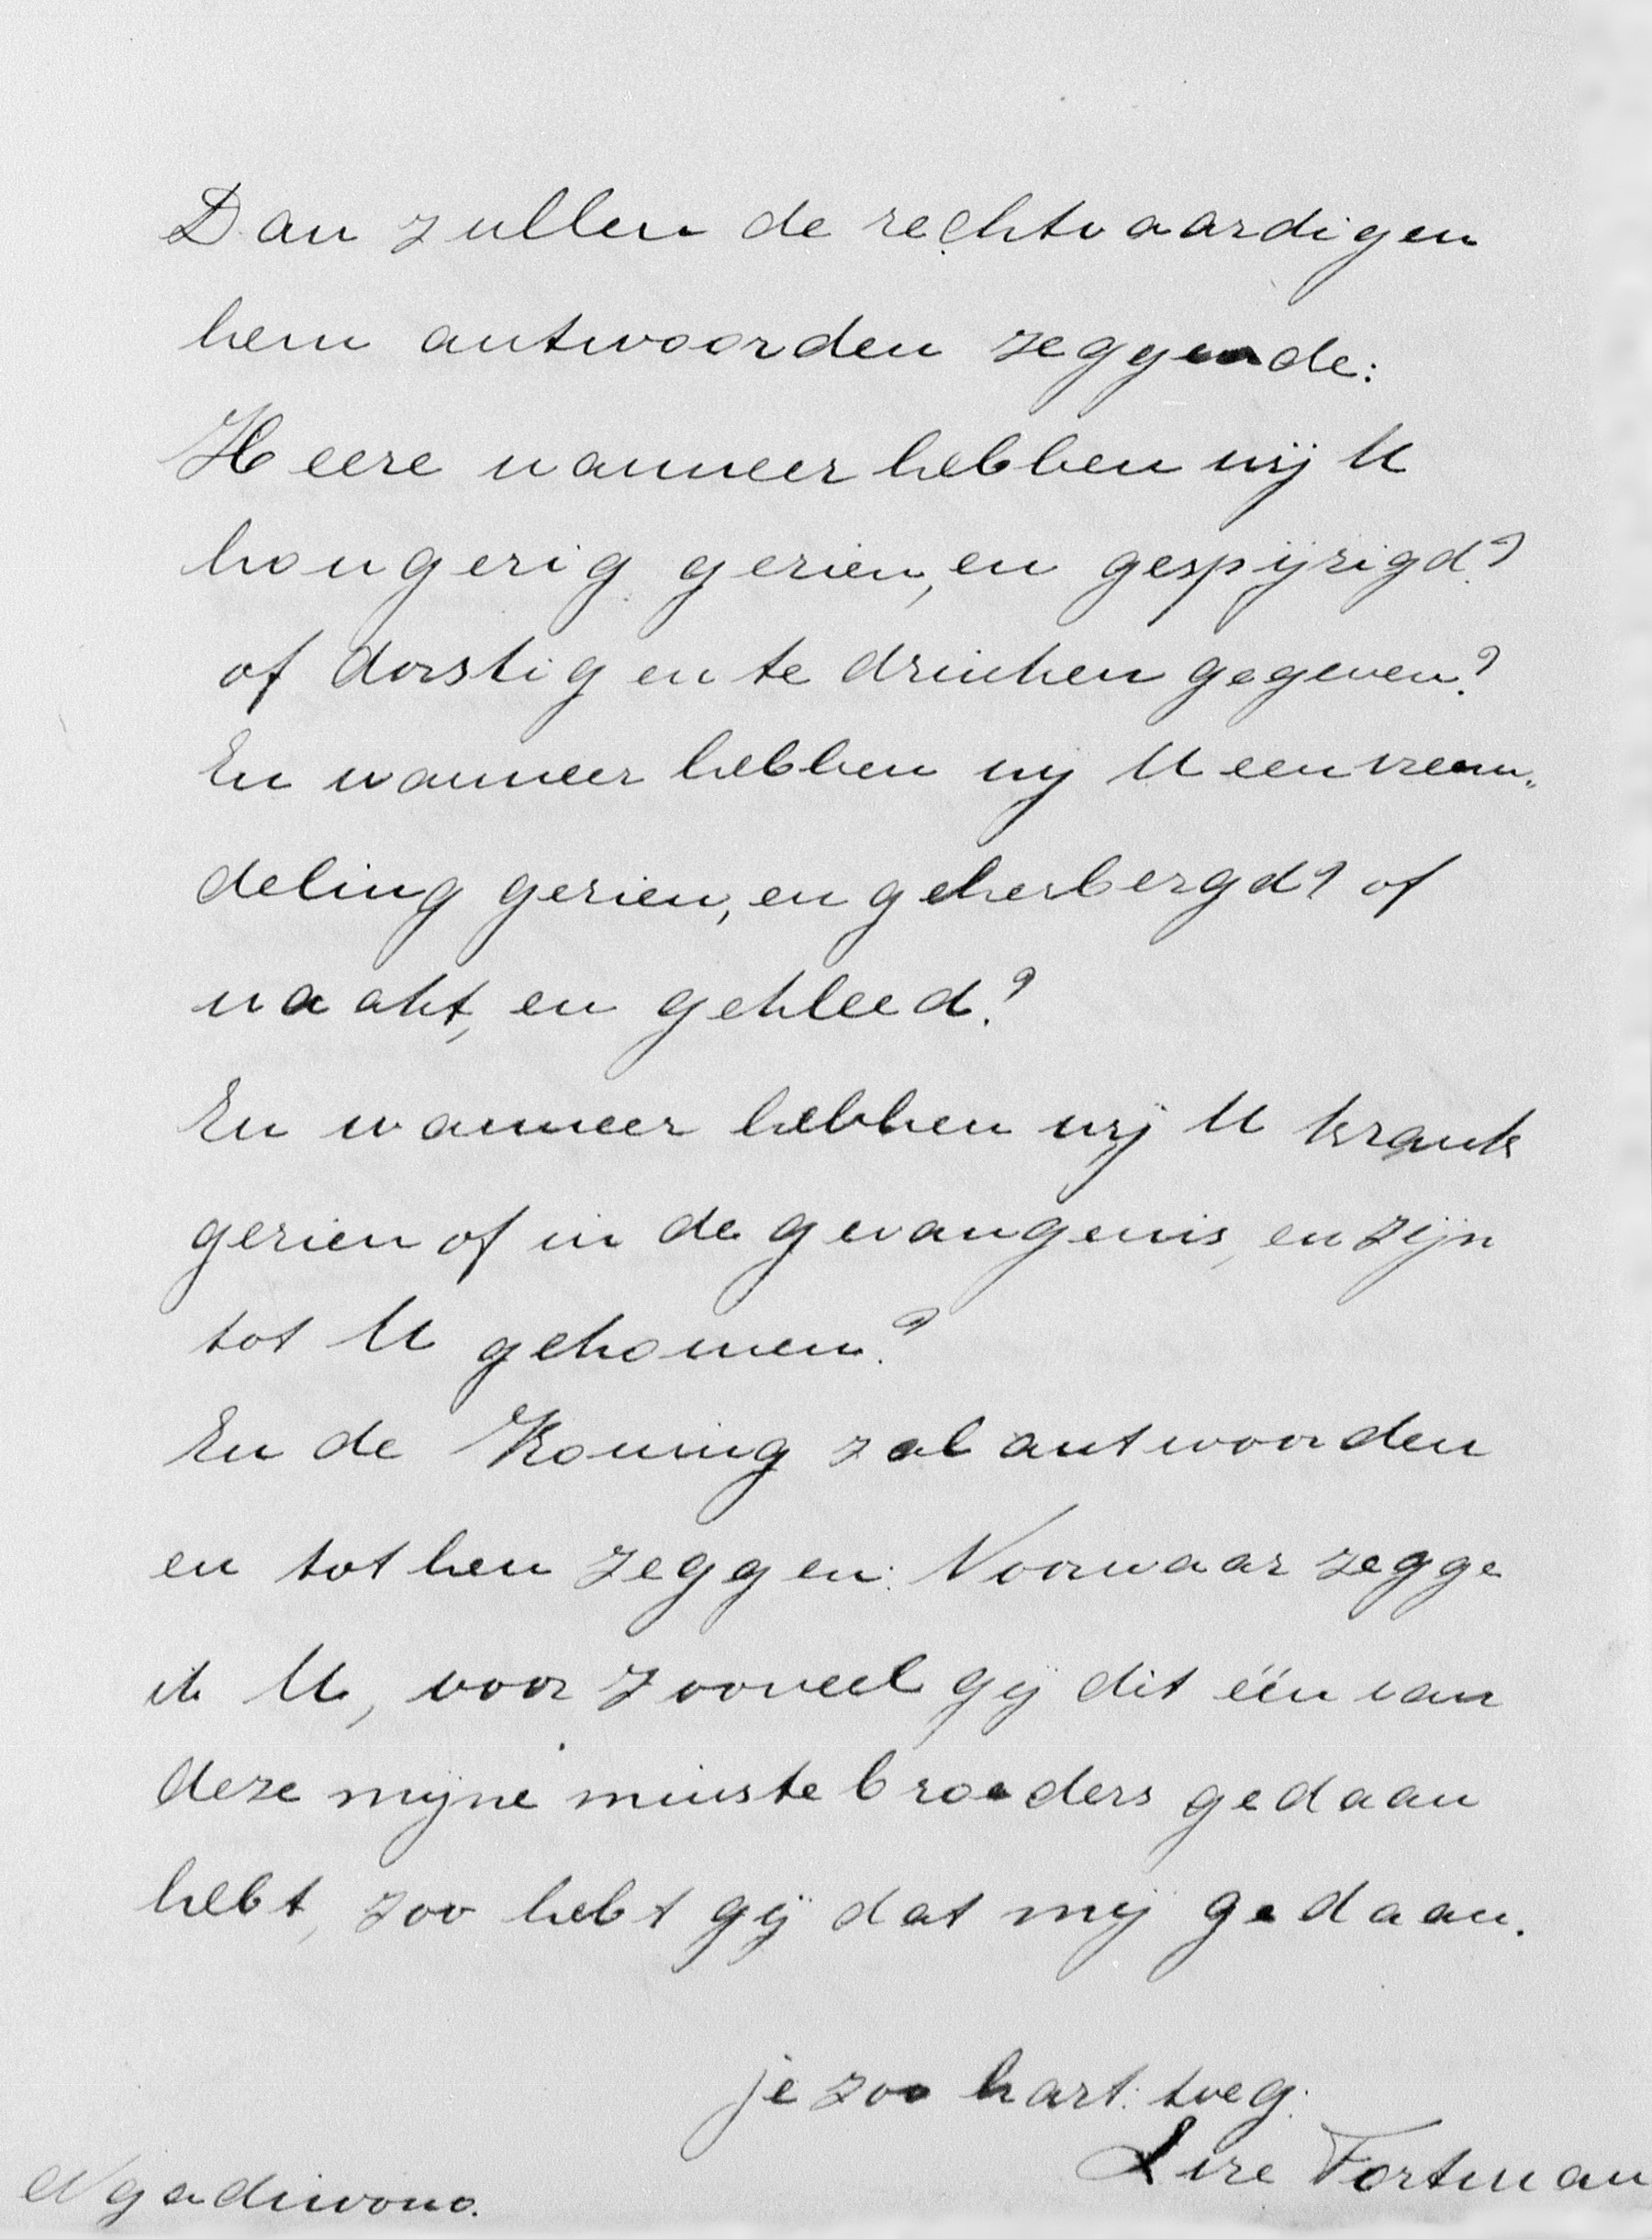 Dan zullen de rechtvaardigen
hem antwoorden zeggende:
Heere wanneer hebben wij U
hongerig gezien, en gespijzigd?
of dorstig en te drinken gegeven?
En wanneer hebben wij U een vreem„
deling gezien, en geherbergd? of
naakt, en gekleed?
En wanneer hebben wij U krank
gezien of in de gevangenis, en zijn
tot U gekomen?
En de Koning zal antwoorden
en tot hen zeggen: Voorwaar zegge
ik U, voor zooveel gij dit één van
deze mijne minste broeders gedaan
hebt, zoo hebt gij dat mij gedaan.
je zoo hart: toeg:
Lize Fortman
Ngadiwono.